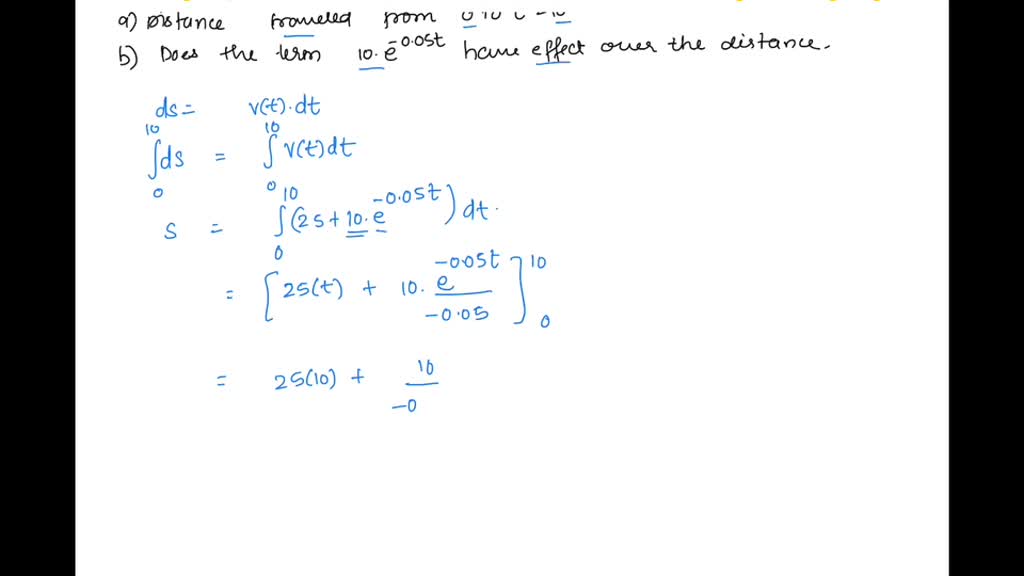 a) Distance traveled from
b) Does the term 10.e^-0.05t have effect over the distance.
ds = v(t).dt
∫₀¹⁰ ds = ∫₀¹⁰ v(t)dt
s = ∫₀¹⁰ (25+10.e^-0.05t) dt.
= [25(t) + 10. e^-0.05t / -0.05]₀¹⁰
= 25(10) + 10 / -0